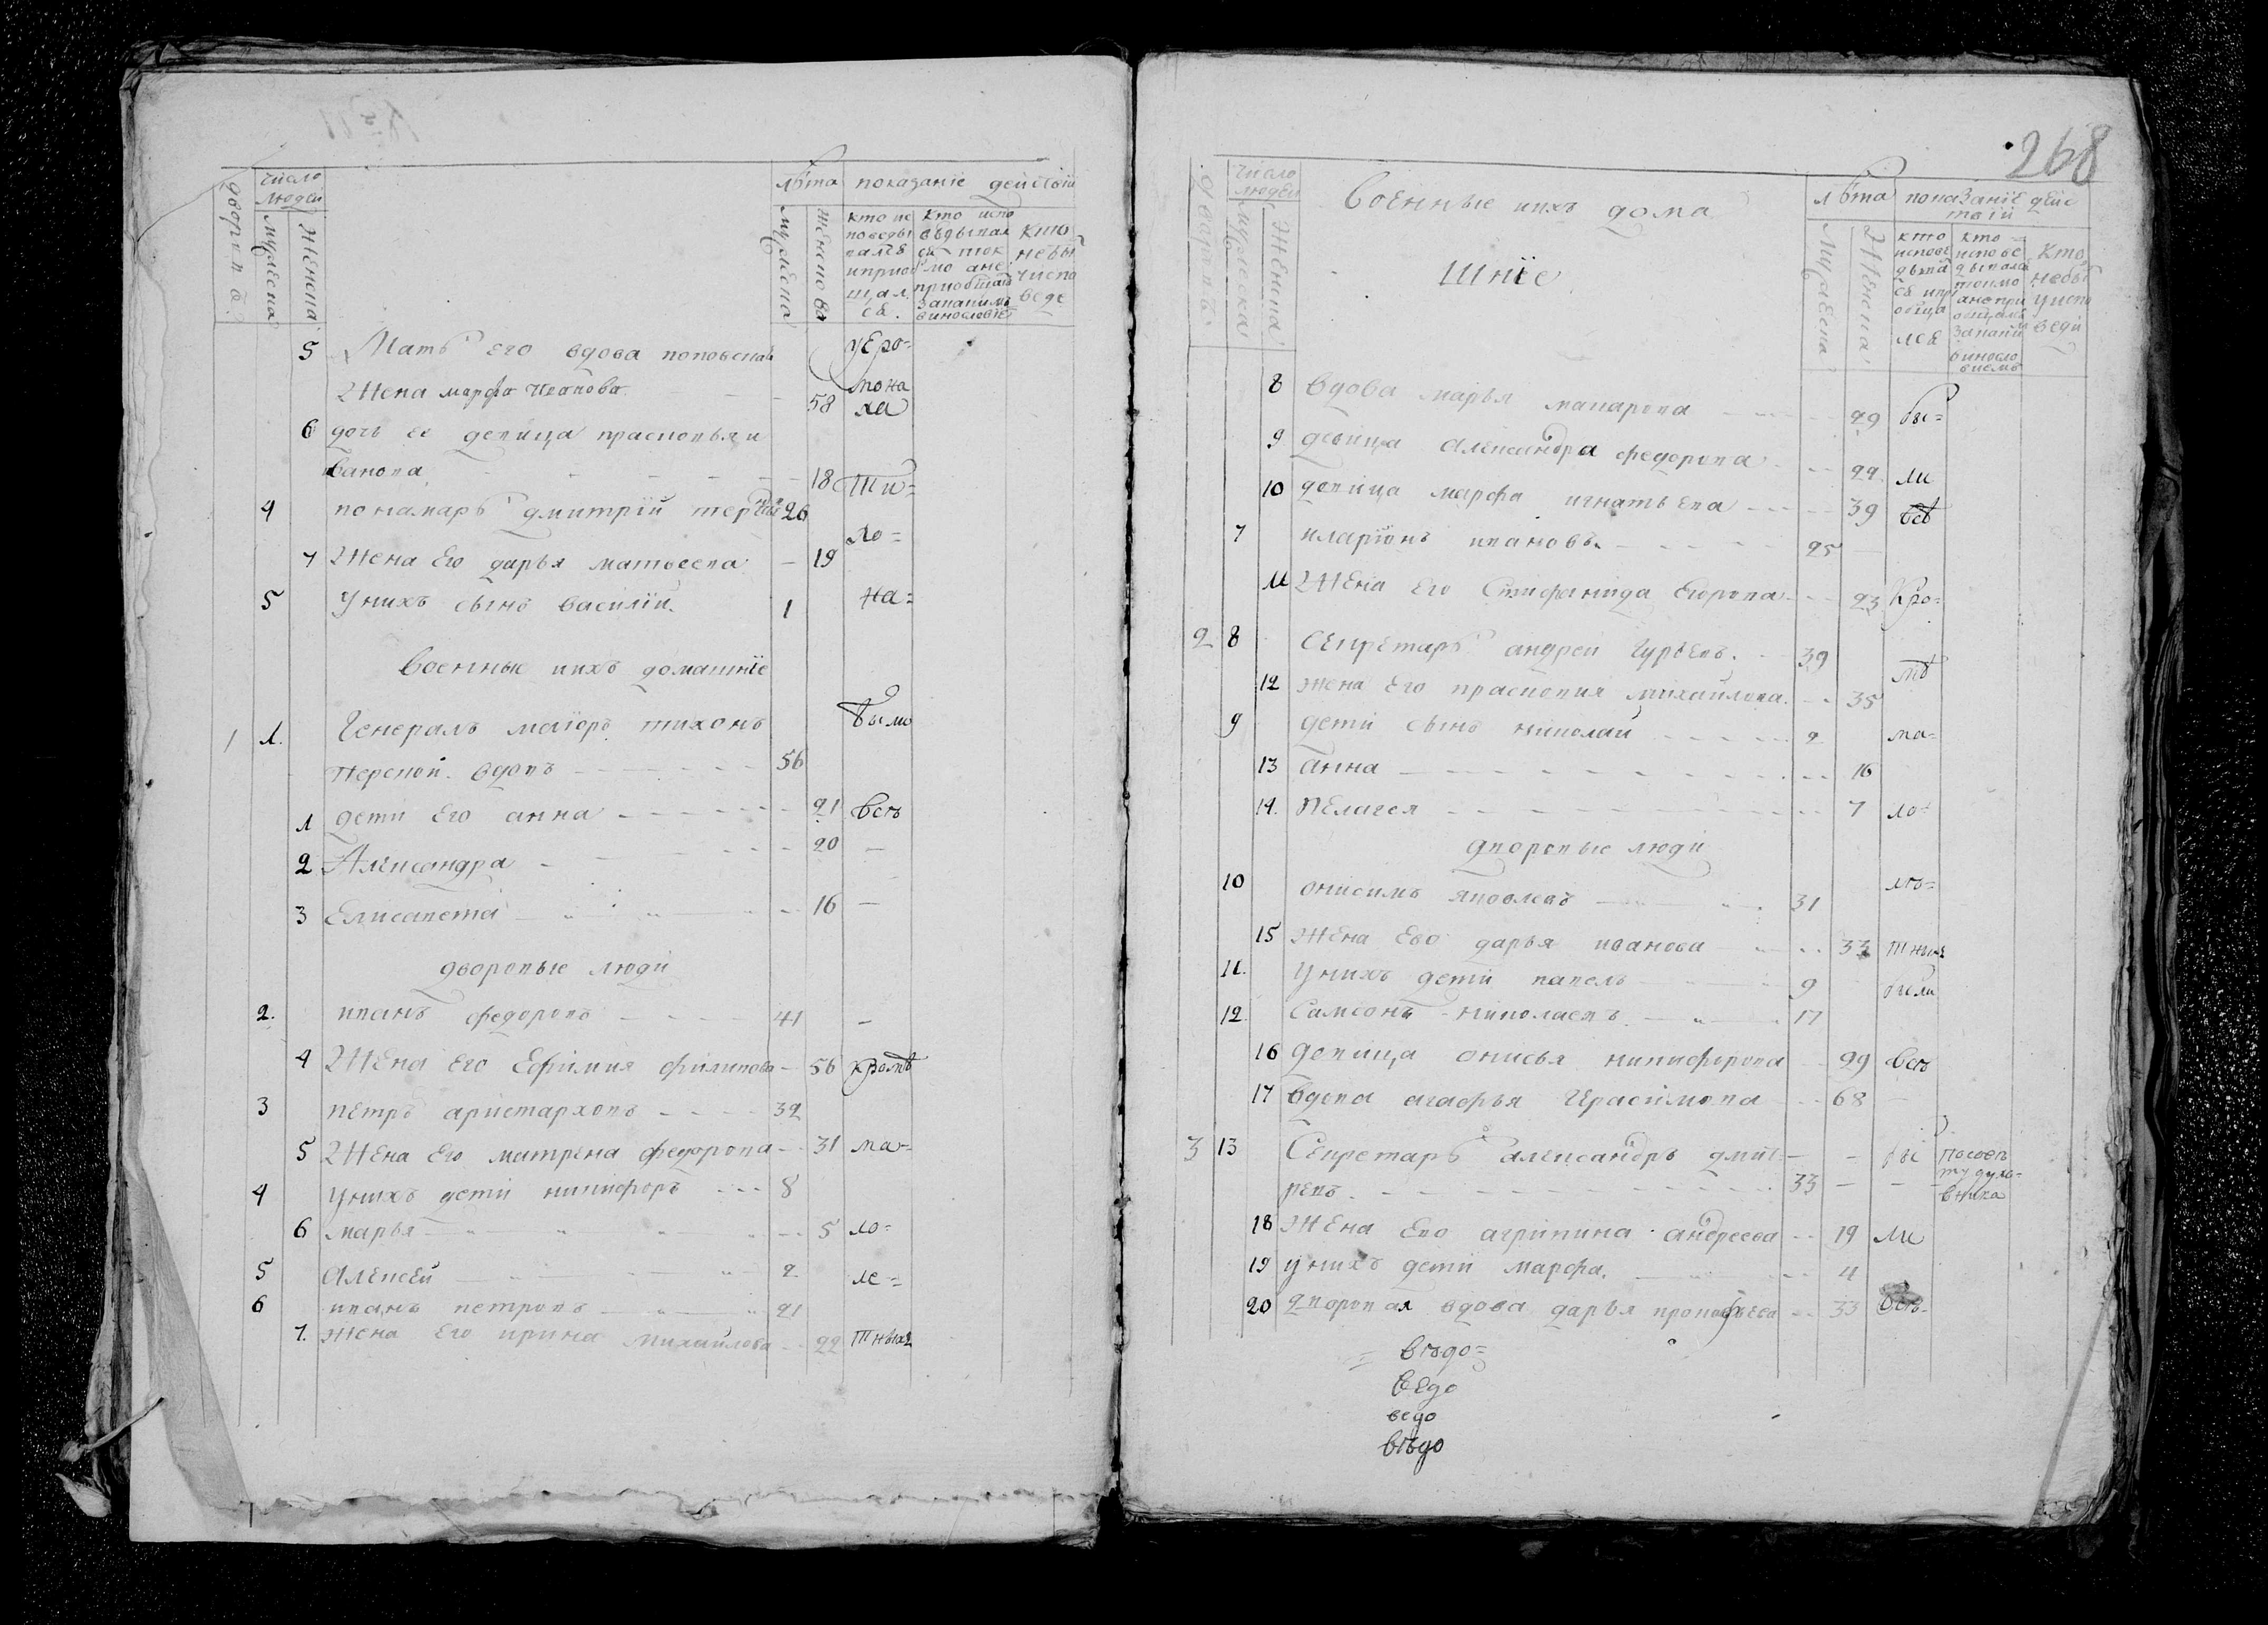 дворовъ
число людей
мужеска
женска
лѣта
мужеска
женско ва
показаніе действій
кто ис поведы вался и приоб щал ся.
кто испо ведывал ся ток мо а не приобщал за каким винословіе
кто небы ч испо веде
5 Мать его вдова поповская іеро=
жена марфа иванова 58 мона ха
6 дочь ее девица прасковья и
ванова 18 ти=
4 понамарь дмитрїй 26 хо=
7 Жена Его дарья матвеева 19
5 у нихъ сынъ василїй. 1 на=
военные и ихъ домашнїе
1 1. Генералъ маїоръ тихонъ были
вдовъ 56
1 дети Его анна 21 все
2 Александра 20 —
3 Елисавета 16 —
дворовые люди
2. иванъ федоровъ 41 —
4 Жена Его Ефимия филипова 56 кромѣ
3 петръ аристарховъ 32
5 Жена Его матрена федорова 31 ма=
4 у нихъ дети никифоръ 8
6 марья 5 ло=
5 Алексей 2 ле=
6 иванъ петровъ 21
7. жена Его ирина михайлова 22 тныхъ
268
дворовъ
число людей
мужеска
женска
Военные и ихъ дома
шнїе
лѣта
мужеска
женска
показанїе дейс твїй
кто исповѣ дыва ся и при обща лся
кто испове дывался токмо а не при общалъ за каким виносло виемъ
Кто не бы у испо веди
8 вдова марья макарова 49 бы=
9 девица александра федорова 22 ли
10 девица марфа игнатьева 39 всѣ
7 иларионъ ивановъ. 25 —
11 Жена Его Стифанида Егорова 23 Кро=
2 8 Секретарь андрей Гурьевъ. 39 мѣ
12 жена Его прасковия михайлова. 35
9 дети сынъ николай 2 ма=
13 анна 16
14. пелагея 7 ло=
дворовые люди
10 онисимъ яковлевъ 31 лѣ=
15 жена Ево дарья иванова 33 тныхъ
11. у нихъ дети павелъ 9 были
12. Самсонъ николаевъ 17
16 девица онисья никифорова 29 все
17 вдова агафья Герасимова 68
3 13 Секретарь александръ дмит — — бы
ревъ. 33 — —
18 жена Ево агрипина андреева 19 ли
19 у нихъ дети марфа. 4
20 дворовая вдова дарья прокофьева 33 всѣ=
вѣдо=
ведо
ведо
вѣдо